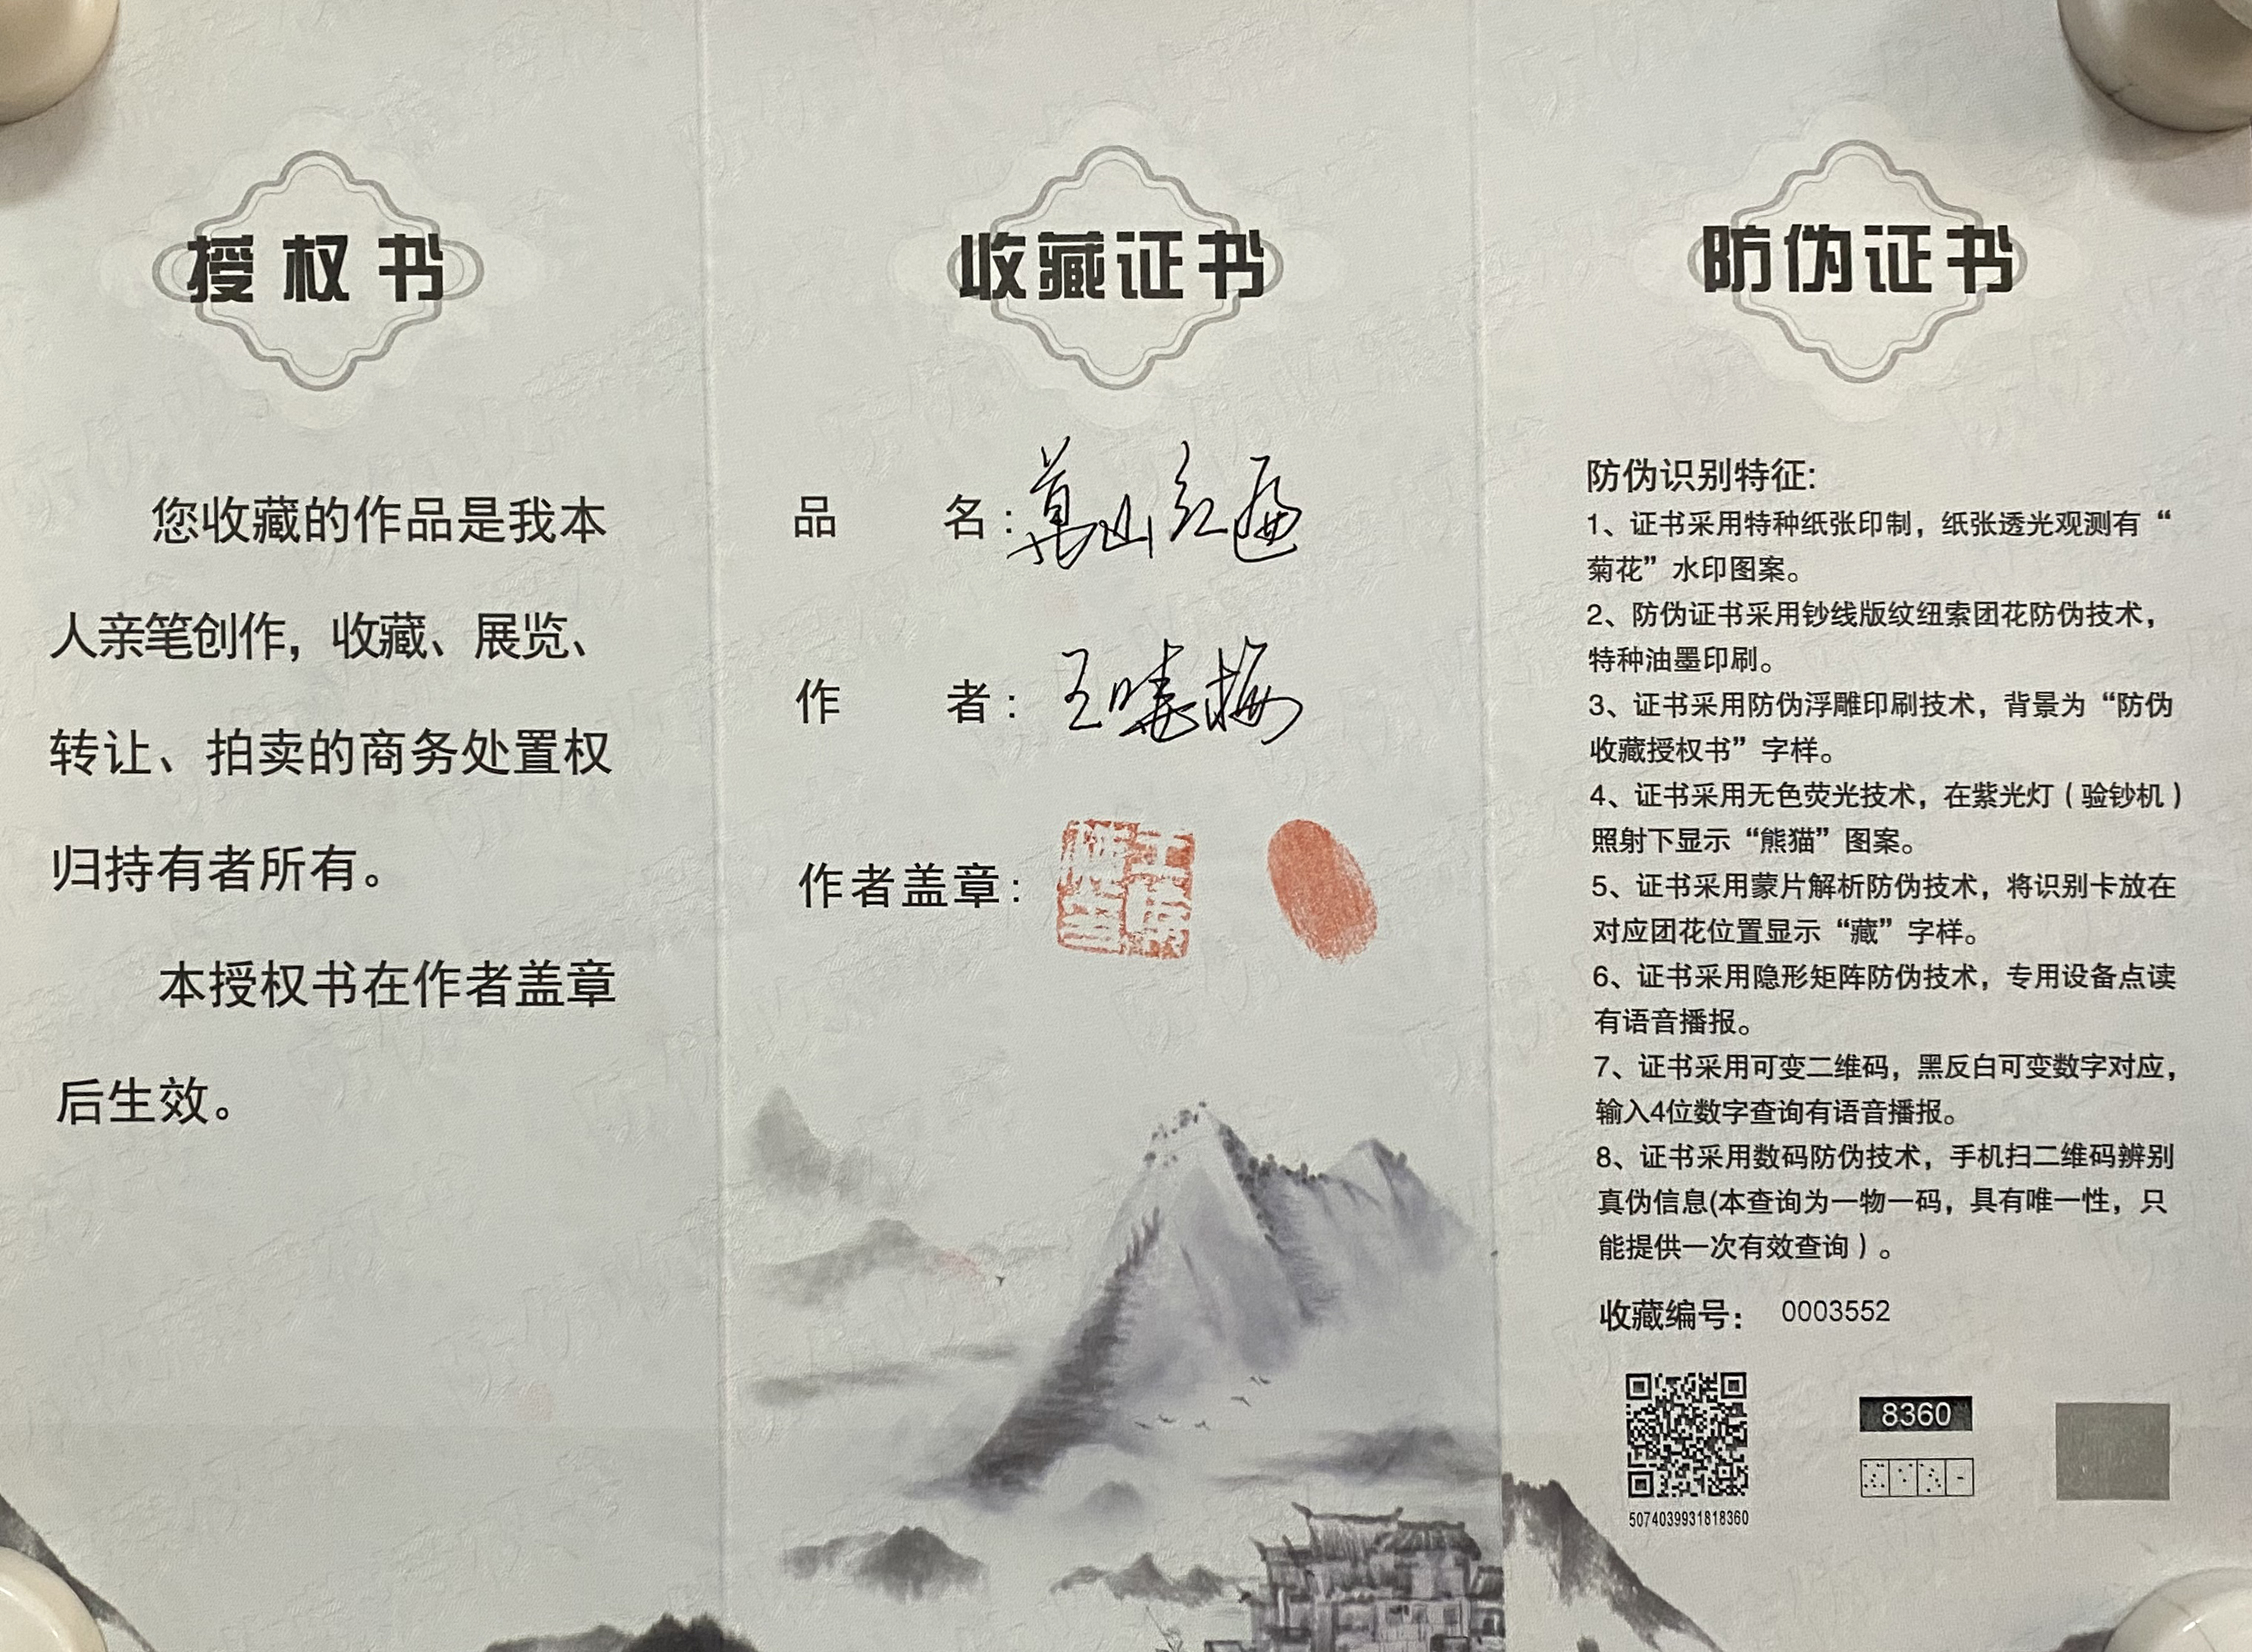 授权书
您收藏的作品是我本
人亲笔创作，收藏、展览、
转让、拍卖的商务处置权
归持有者所有。
本授权书在作者盖章
后生效。
收藏证书
品 名：萬山红遍
作 者：王晓梅
作者盖章：
防伪证书
防伪识别特征:
1、证书采用特种纸张印制，纸张透光观测有“
菊花”水印图案。
2、防伪证书采用钞线版纹纽索团花防伪技术，
特种油墨印刷。
3、证书采用防伪浮雕印刷技术，背景为“防伪
收藏授权书”字样。
4、证书采用无色荧光技术，在紫光灯（验钞机）
照射下显示“熊猫”图案。
5、证书采用蒙片解析防伪技术，将识别卡放在
对应团花位置显示“藏”字样。
6、证书采用隐形矩阵防伪技术，专用设备点读
有语音播报。
7、证书采用可变二维码，黑反白可变数字对应，
输入4位数字查询有语音播报。
8、证书采用数码防伪技术，手机扫二维码辨别
真伪信息(本查询为一物一码，具有唯一性，只
能提供一次有效查询）。
收藏编号： 0003552
8360
5074039931818360